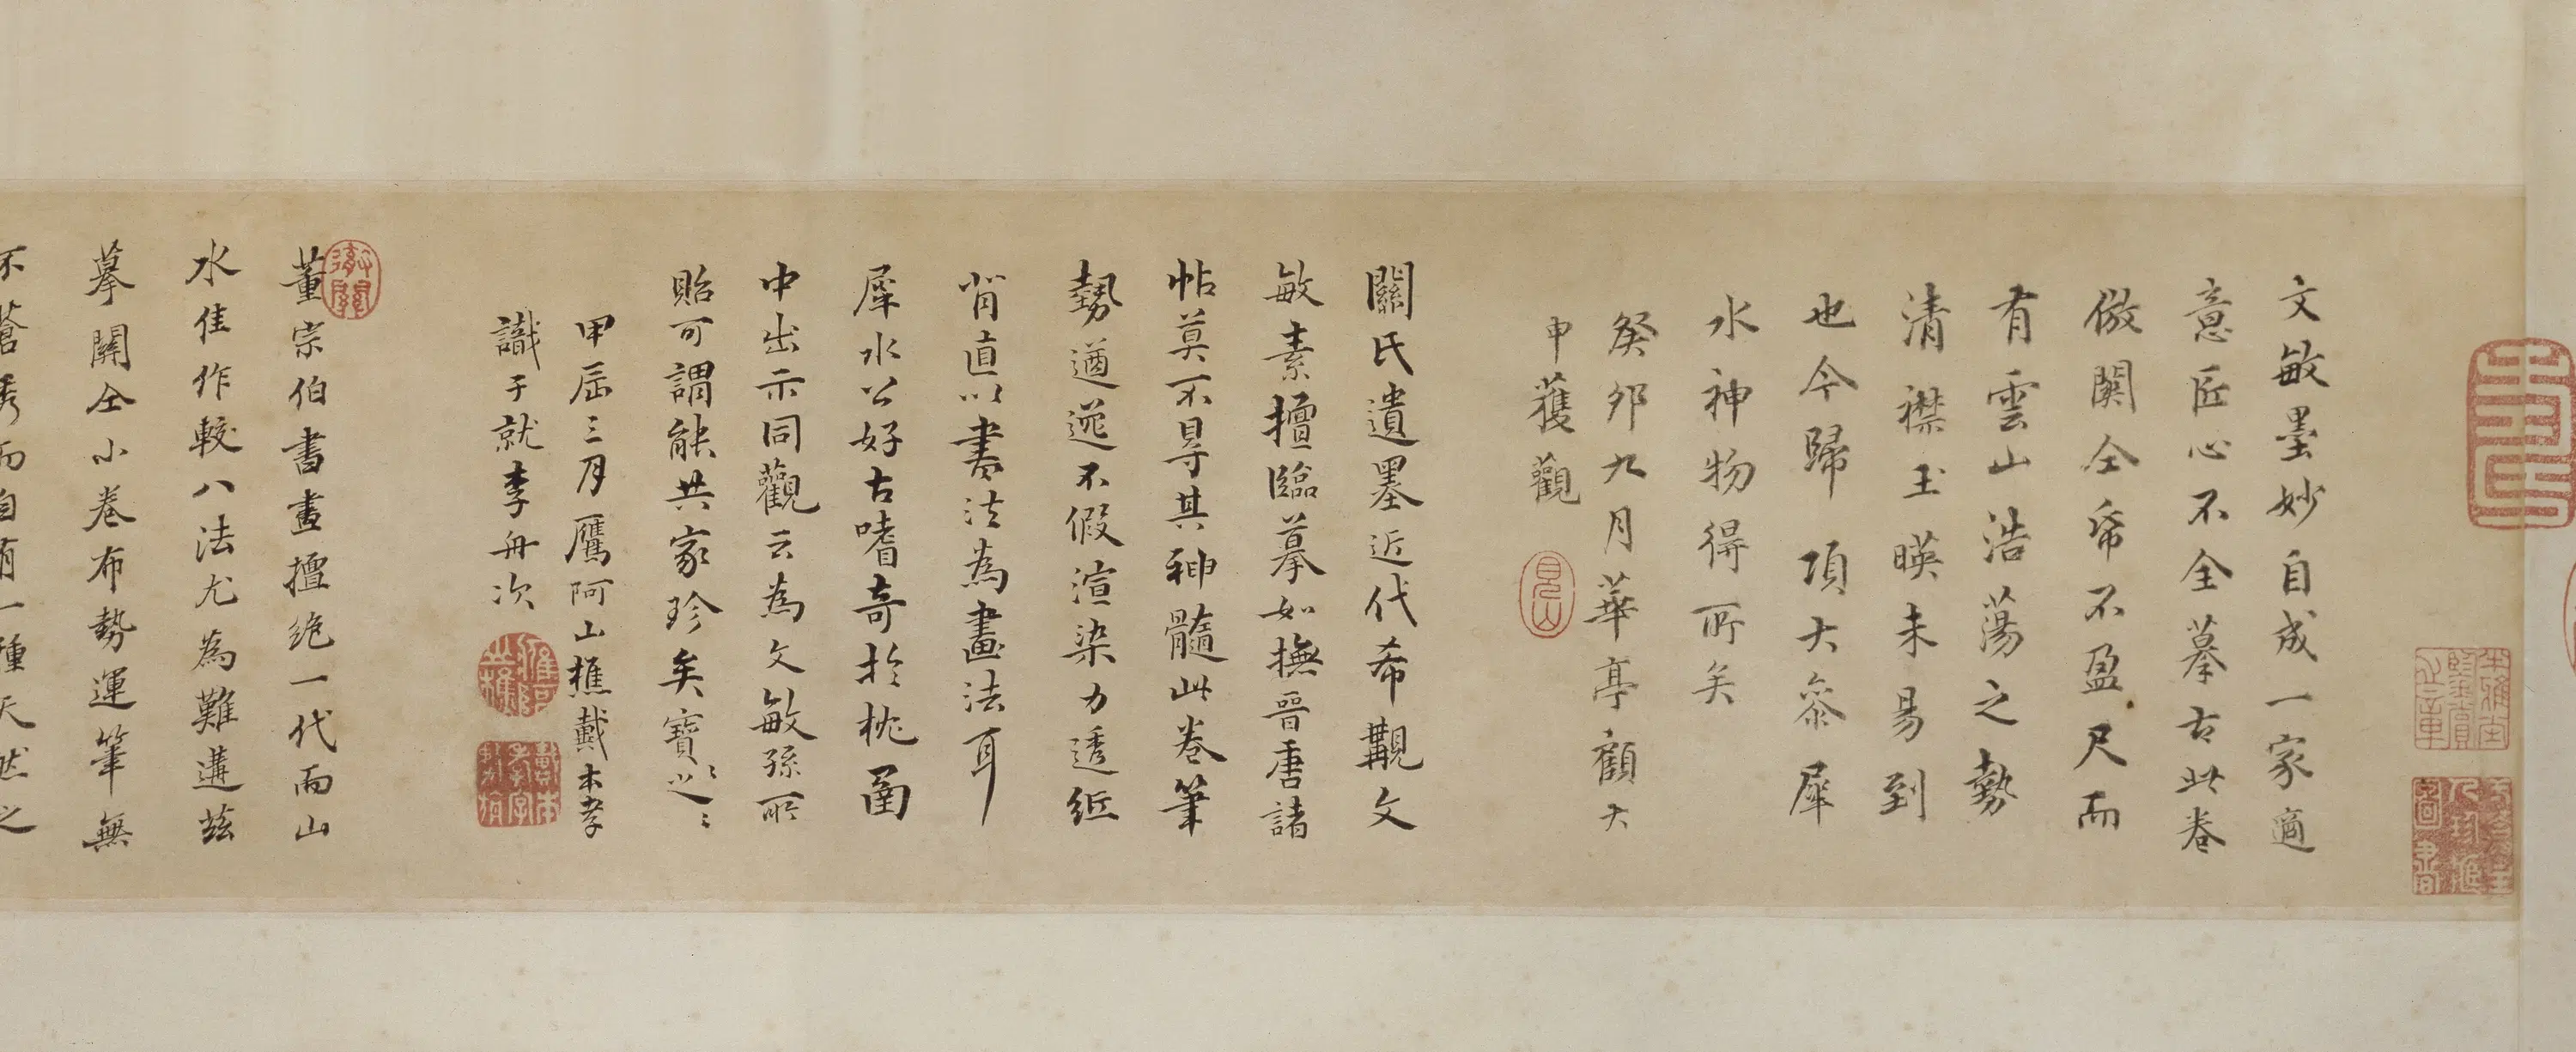 文敏墨妙自成一家適
意匠心不全摹古此卷
倣関仝帋不盈尺而
有雲山浩蕩之勢
清襟玉暎未易到
也今歸 項大叅犀
水神物得所矣
癸卯九月華亭顧大
申獲觀
關氏遺墨近代希覯文
敏素擅臨摹如撫晉唐諸
帖莫不㝵其神髓此卷筆
勢遒逸不假渲染力透紙
背直以書法為畫法耳
犀水公好古嗜奇於枕函
中出示同觀云為文敏孫所
貽可謂能共家珍矣寶之
甲辰三月鷹阿山樵戴本孝
識于就李舟次
董宗伯書畫擅絶一代而山
水佳作較八法尤為難遘兹
摹關仝小卷布勢運筆無
不蒼秀而自有一種天然之